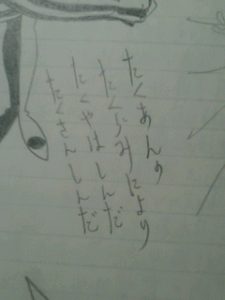 たくあんの
たくらみにより
たくやはしんだ
たくさんしんだ